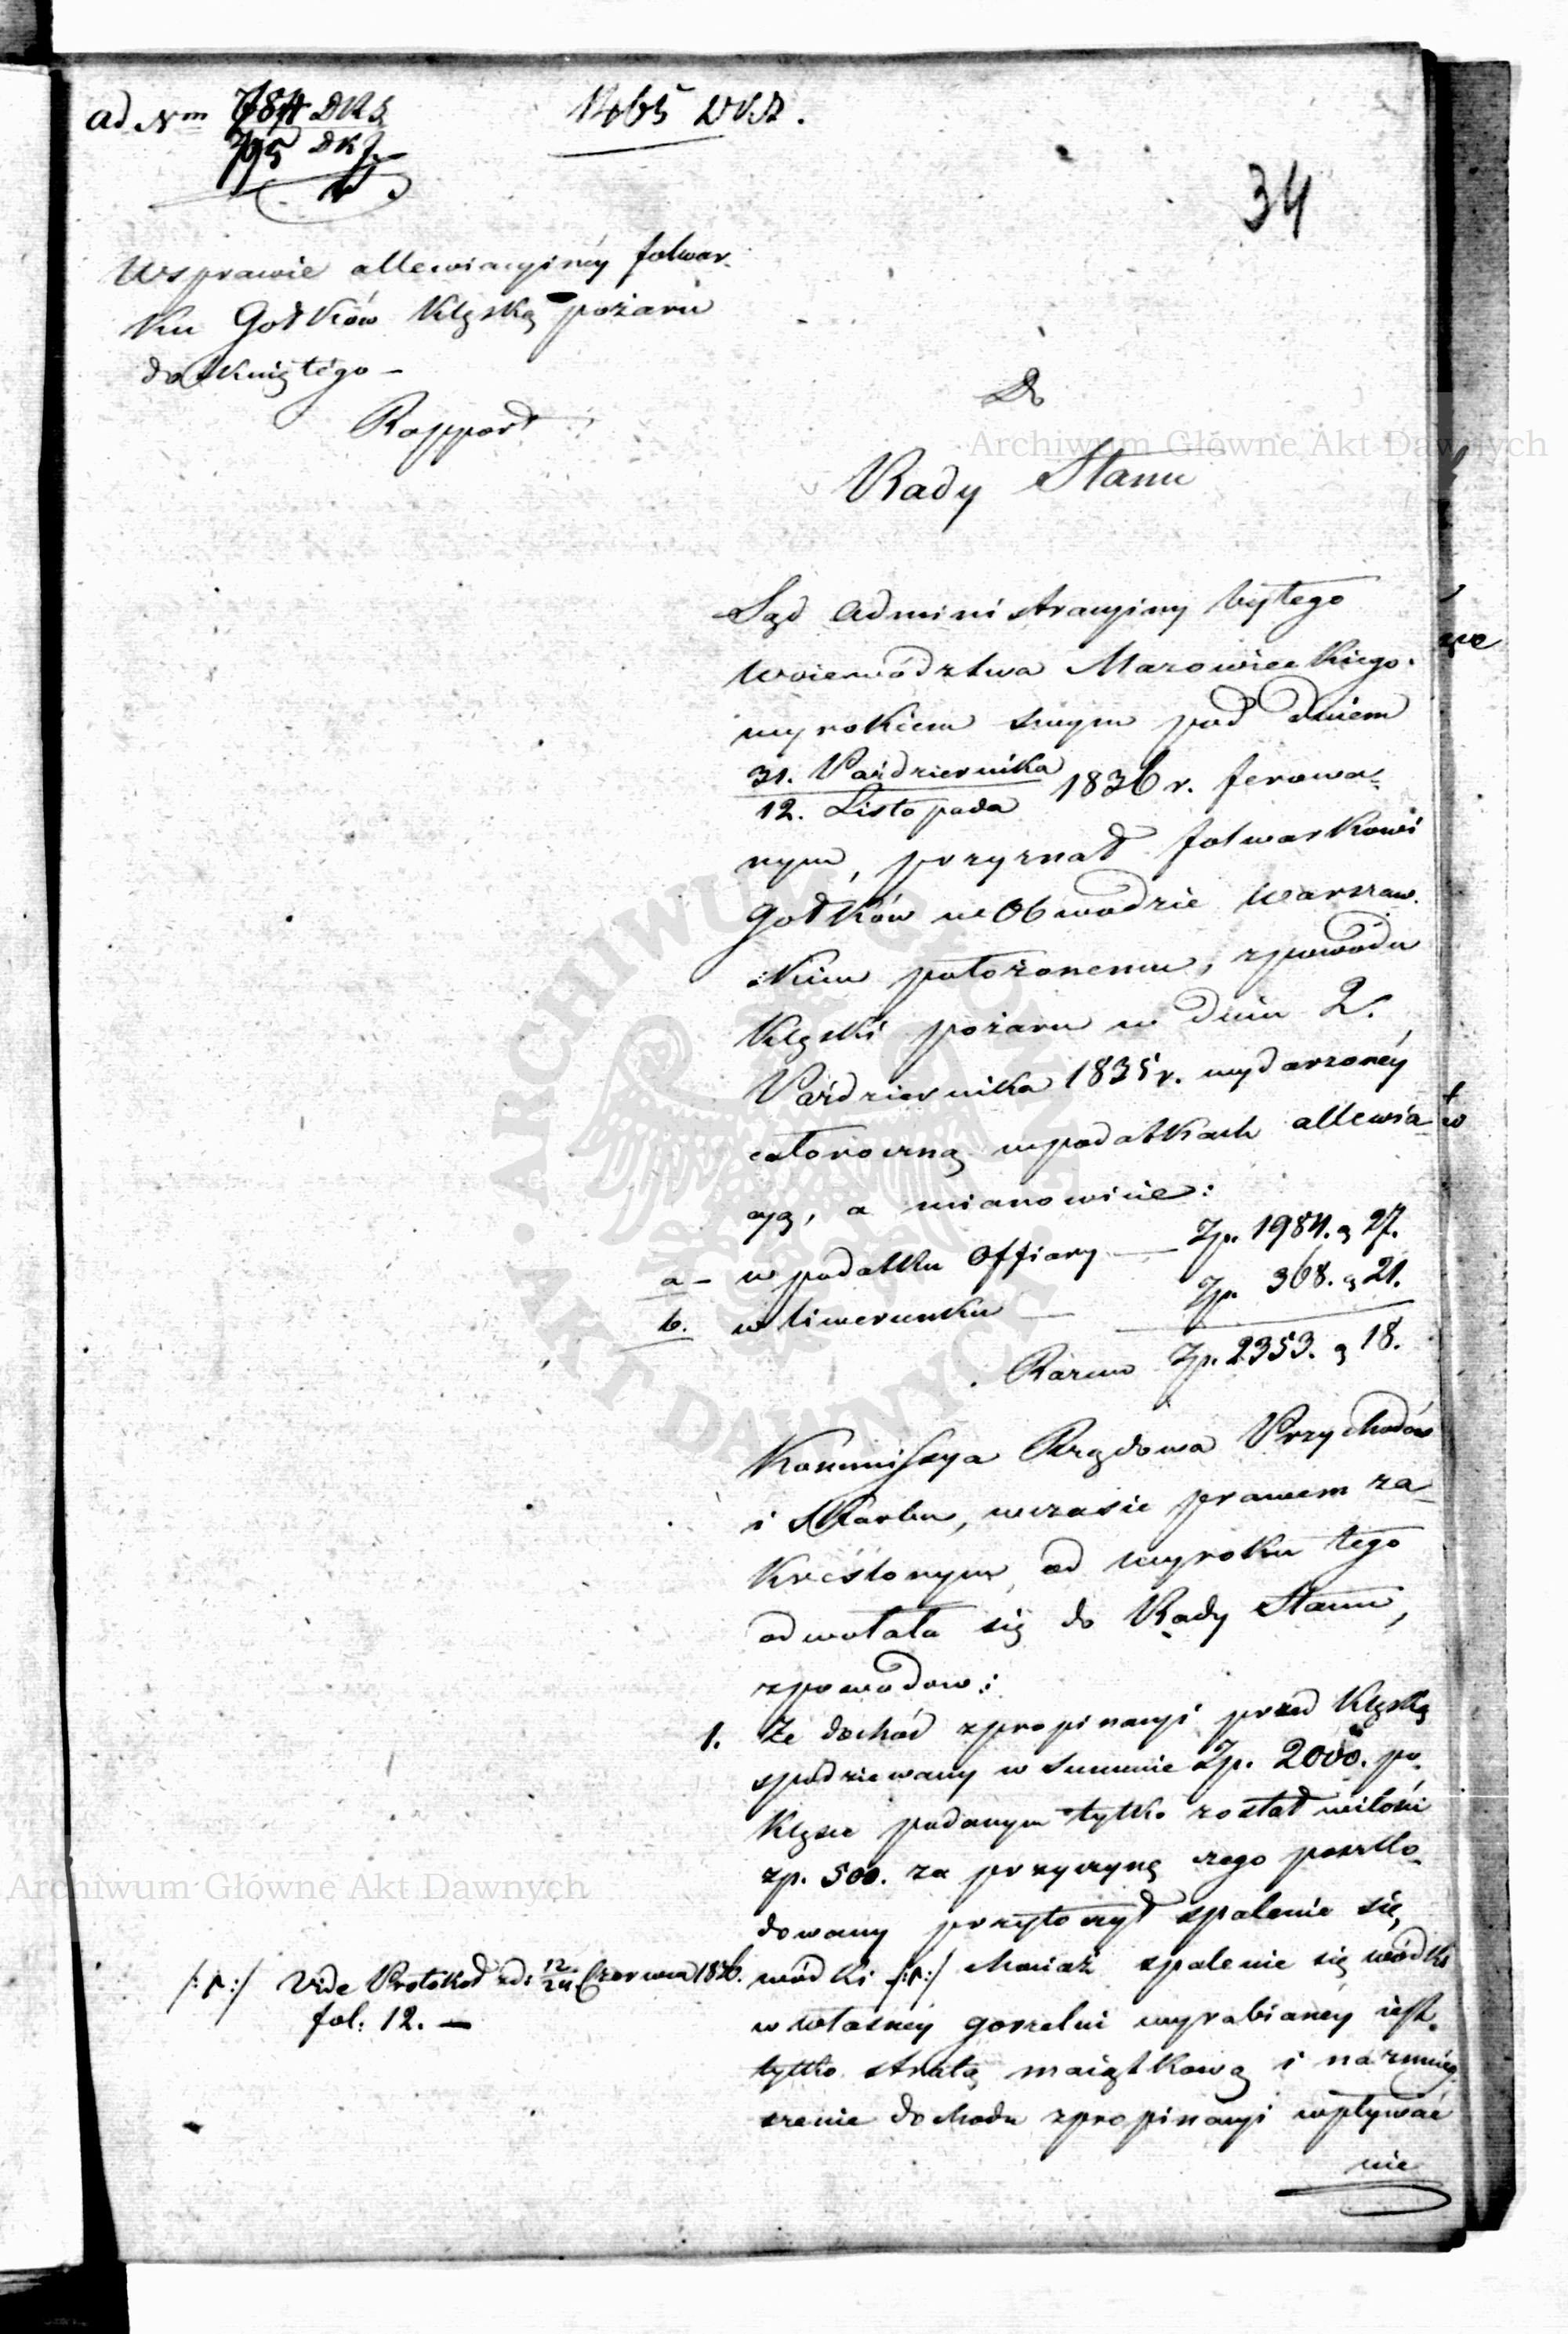 ad Nm 784 DKS
795 DKJ
1465 DKS.
34
W sprawie allewiacyinéy folwar-
ku Gołków klęską pożaru
dotkniętego –
Rapport
Do
Rady Stanu
Archiwum Główne Akt Dawnych
Sąd Administracyiny byłego
Woiewództwa Mazowieckiego
wyrokiem swym pod dniem
31. Października
12. Listopada 1836 r. ferowa-
nym, przyznał folwarkowi
Gołków w Obwodzie Warszaw-
skim położonemu, z powodu
klęski pożaru w dniu 2.
Października 1835 r. wydarzonéy
całoroczną w podatkach allewia-
cyą, a mianowicie:
a – w podatku Offiary — Zp. 1984. g 27.
b. w liwerunku — Zp. 368. g 21.
Razem Zp. 2353. g 18.
Kommissya Rządowa Przychodów
i Skarbu, w czasie prawem za-
kreślonym, od wyroku tego
odwołała się do Rady Stanu,
z powodow:
1. Że dochód z propinacyi przed klęską
spodziewany w summie Zp. 2000. po
klęsce podanym tylko został w ilości
zp. 500. za przyczynę czego poszko-
dowany przytoczył spalenie się
wódki /:p:/ chociaż spalenie się wódki
w własnéy gorzelni wyrabianéy iest
tylko stratą maiątkową i na zmniey-
szenie dochodu z propinacyi wpływać
nie
/:p:/ Vide Protokół z d: 12/24 Czerwca 1836.
fol: 12. —
Archiwum Główne Akt Dawnych
ARCHIWUM GŁÓWNE AKT DAWNYCH